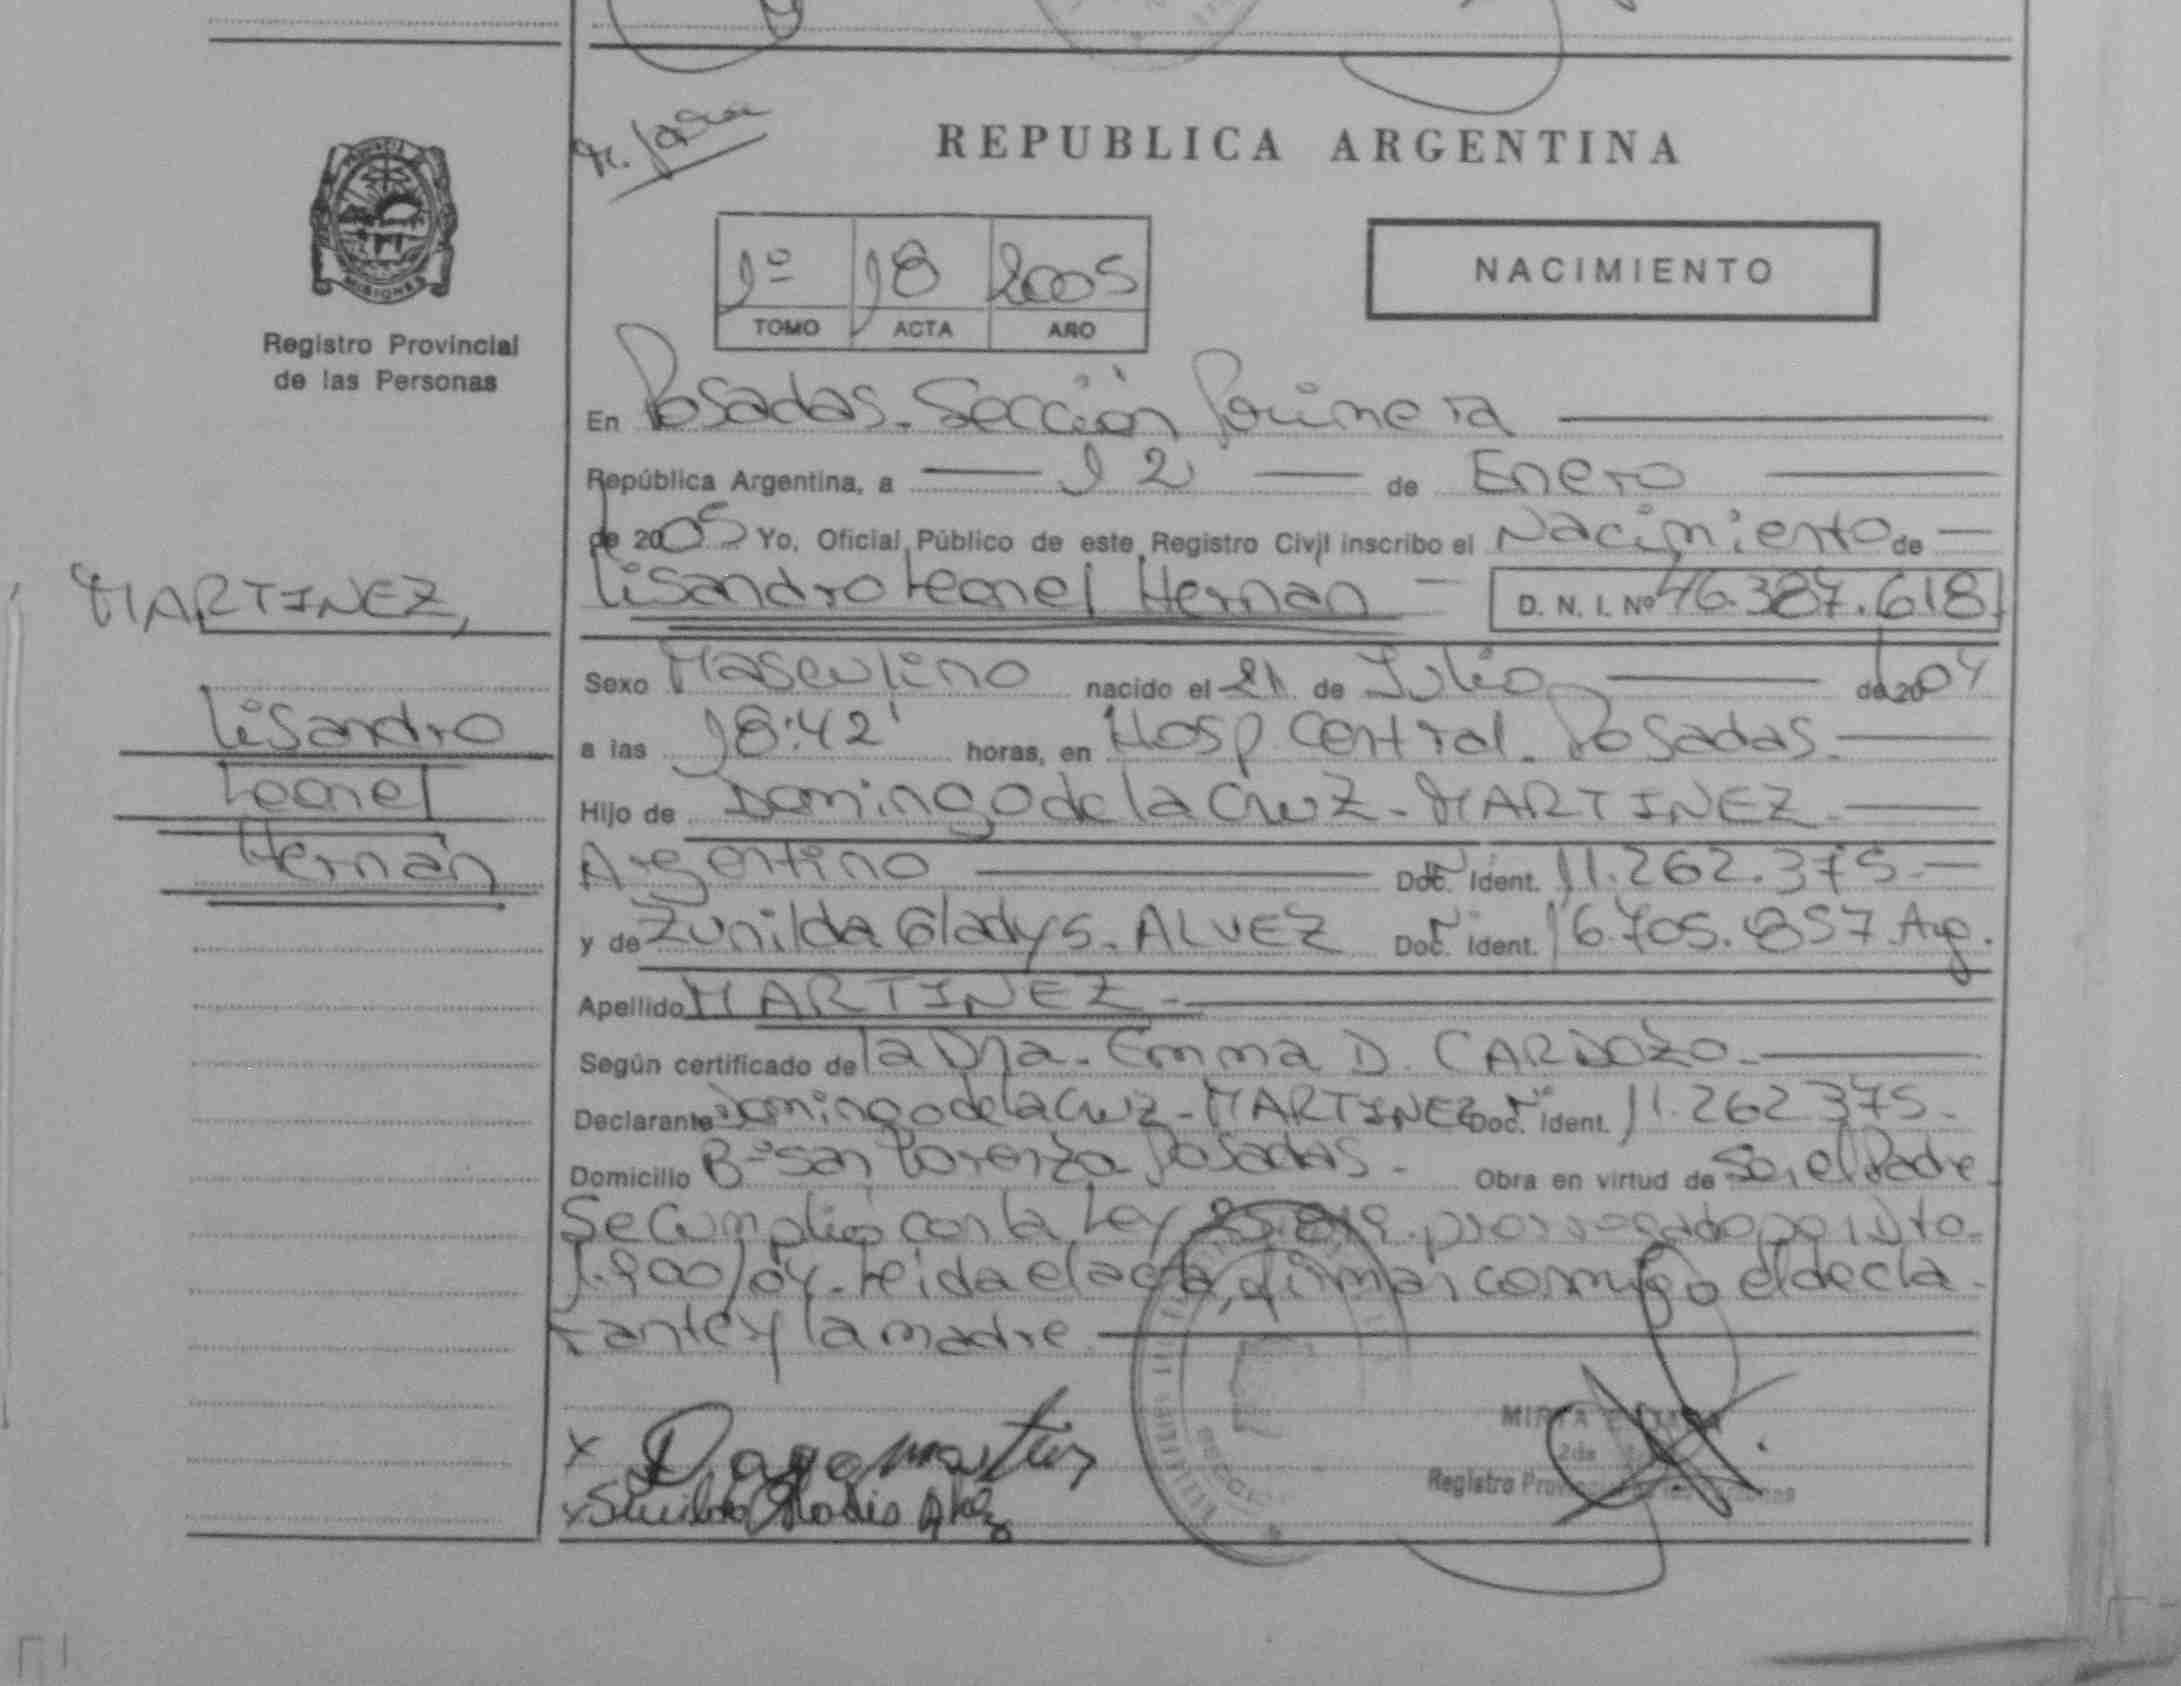 REPUBLICA ARGENTINA
MISIONES
Registro Provincial
de las Personas
1º 18 2005
TOMO ACTA AÑO
NACIMIENTO
En Posadas. Sección Primera
República Argentina, a 12 de Enero
de 2005 Yo, Oficial Público de este Registro Civil inscribo el Nacimiento de
Lisandro Leonel Hernan D. N. I. Nº 46.387.618
MARTINEZ,
Lisandro
Leonel
Hernán
Sexo Masculino nacido el 21 de Julio de 2004
a las 18:42' horas, en Hosp. Central. Posadas.
Hijo de Domingo de la Cruz - MARTINEZ.
Argentino Doc. Ident. 11.262.375.
y de Zunilda Gladys. ALVEZ Doc. Ident. 16.705.857 Arg.
Apellido MARTINEZ.
Según certificado de la Dra. Emma D. CARDOZO.
Declarante Domingo de la Cruz - MARTINEZ Doc. Ident. 11.262.375.
Domicilio Bº San Lorenzo Posadas. Obra en virtud de Ser el Padre
Se Cumplió con la Ley 25.819. prorrogado por Dto.
1.900/04. Leida el acta, firman conmigo el decla
rante y la madre.
x
x
Registro